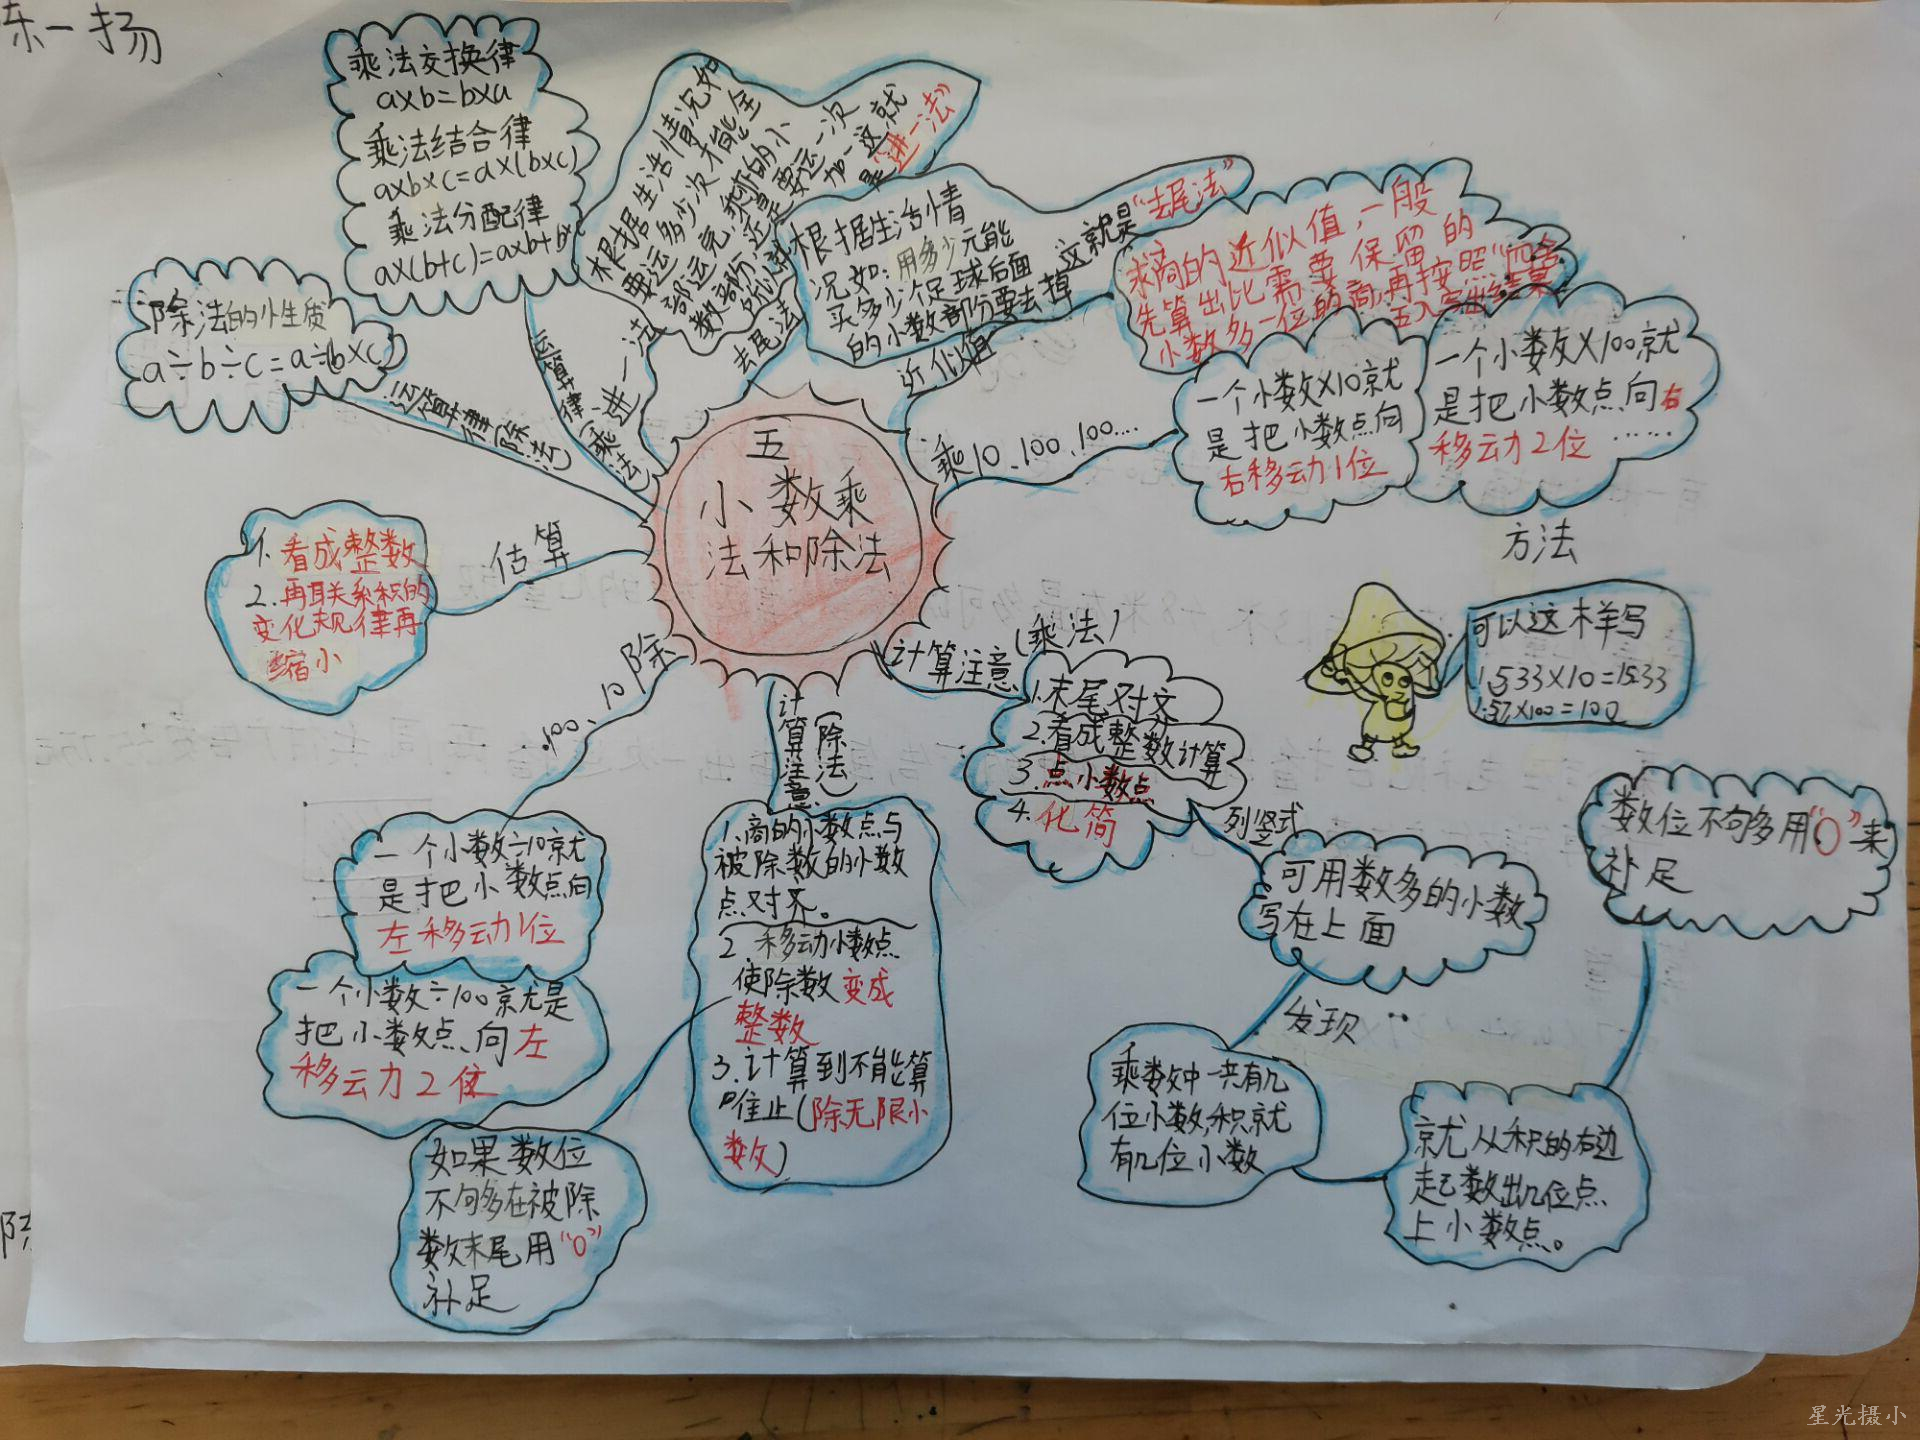 一扬
乘法交换律
a×b=b×a
乘法结合律
a×b×c=a×(b×c)
乘法分配律
a×(b+c)=a×b+b×
除法的小性质
a÷b÷c=a÷(b×c)
运算律(除法)
运算律(乘法)
进一法
根据生活情况如
要运多少次才能全
部运完,乘下的小
数部份,还是要运一次
加一这就
是“进一法”
去尾法
根据生活情
况如:用多少元能
买多少个足球后面
的小数部份要去掉
这就是“去尾法”
近似值
求商的近似值,一般
先算出比需要保留的
小数多一位的商,再按照“四舍
五入写出结果
乘10、100、100....
一个小数×10就
是把小数点向
右移动1位
一个小数×100就
是把小数点向右
移动2位……
五
小数乘
法和除法
估算
1.看成整数
2.再联系积的
变化规律再
缩小
方法
可以这样写
1.533×10=15.33
1.57×100=100
计算注意(乘法)
1.末尾对文
2.看成整数计算
3.点小数点
4.化简
列竖式
可用数多的小数
写在上面
发现
乘数中一共有几
位小数,积就
有几位小数
就从积的右边
起数出几位点
上小数点。
数位不够多用“0”来
补足
除10、100
一个小数÷10就
是把小数点向
左移动1位
一个小数÷100就是
把小数点向左
移动2位
计算注意(除法)
1.商的小数点与
被除数的小数
点对齐。
2.移动小数点
使除数变成
整数
3.计算到不能算
止(除无限小
数)
如果数位
不够多在被除
数末尾用“0”
补足
星光摄小